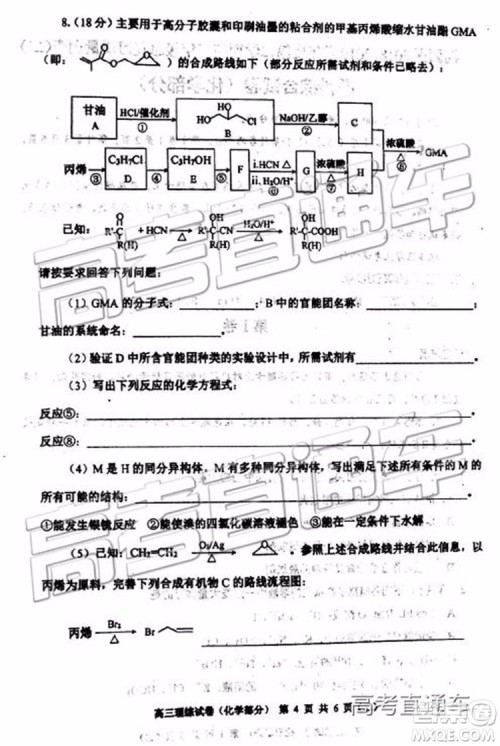 8.(18分)主要用于高分子胶囊和印刷油墨的粘合剂的甲基丙烯酸缩水甘油酯GMA
(即: O O O )的合成路线如下(部分反应所需试剂和条件已略去):
甘油 A HCl/催化剂 ① HO HO Cl B NaOH/乙醇 ② C 浓硫酸 △ ⑧ GMA
丙烯 ③ C₃H₅Cl D ④ C₃H₇OH E ⑤ F i.HCN △ ii.H₂O/H⁺ ⑥ G 浓硫酸 △ ⑦ H
已知: R'-C-R(H) O +HCN △ R'-C-CN OH R(H) H₂O/H⁺ △ R'-C-COOH OH R(H)
请按要求回答下列问题:
(1)GMA的分子式: ;B中的官能团名称: ;
甘油的系统命名: 。
(2)验证D中所含官能团种类的实验设计中,所需试剂有
(3)写出下列反应的化学方程式:
反应⑤:
反应⑧:
(4)M是H的同分异构体。M有多种同分异构体,写出满足下述所有条件的M的
所有可能的结构:
①能发生银镜反应 ②能使溴的四氯化碳溶液褪色 ③能在一定条件下水解
(5)已知:CH₂=CH₂ O₂/Ag O 。参照上述合成路线并结合此信息,以
丙烯为原料,完善下列合成有机物C的路线流程图:
丙烯 Br₂ △ Br
高三理综试卷(化学部分) 第 4 页 共 6 页
高考直通车